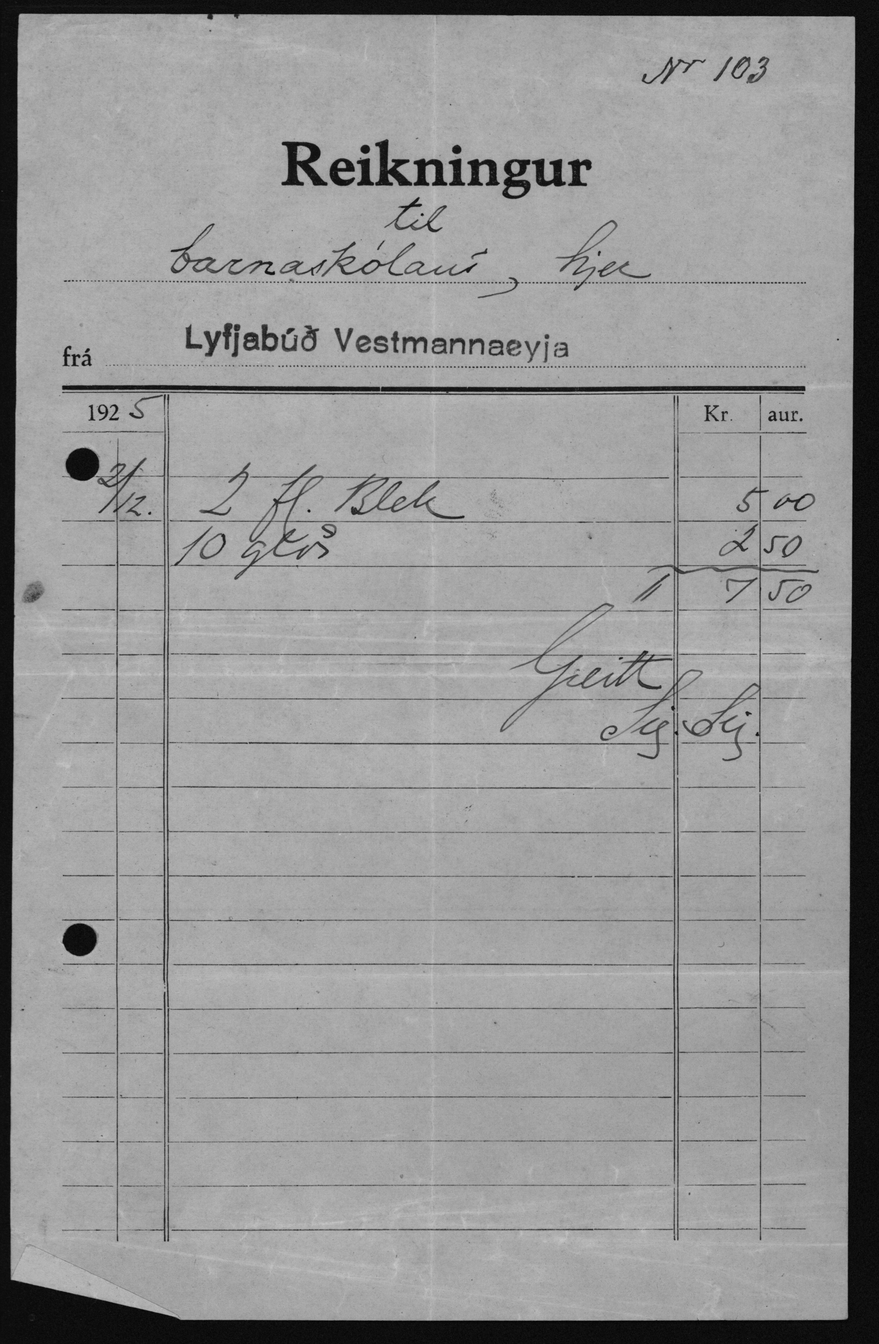 Nr 103
Reikningur
til
barnaskólans, hjer
frá Lyfjabúð Vestmannaeyja
1925 Kr. aur.
2/12. 2 fl. Blek 5 00
10 glös 2 50
" 7 50
Greitt
Sig. Sig.